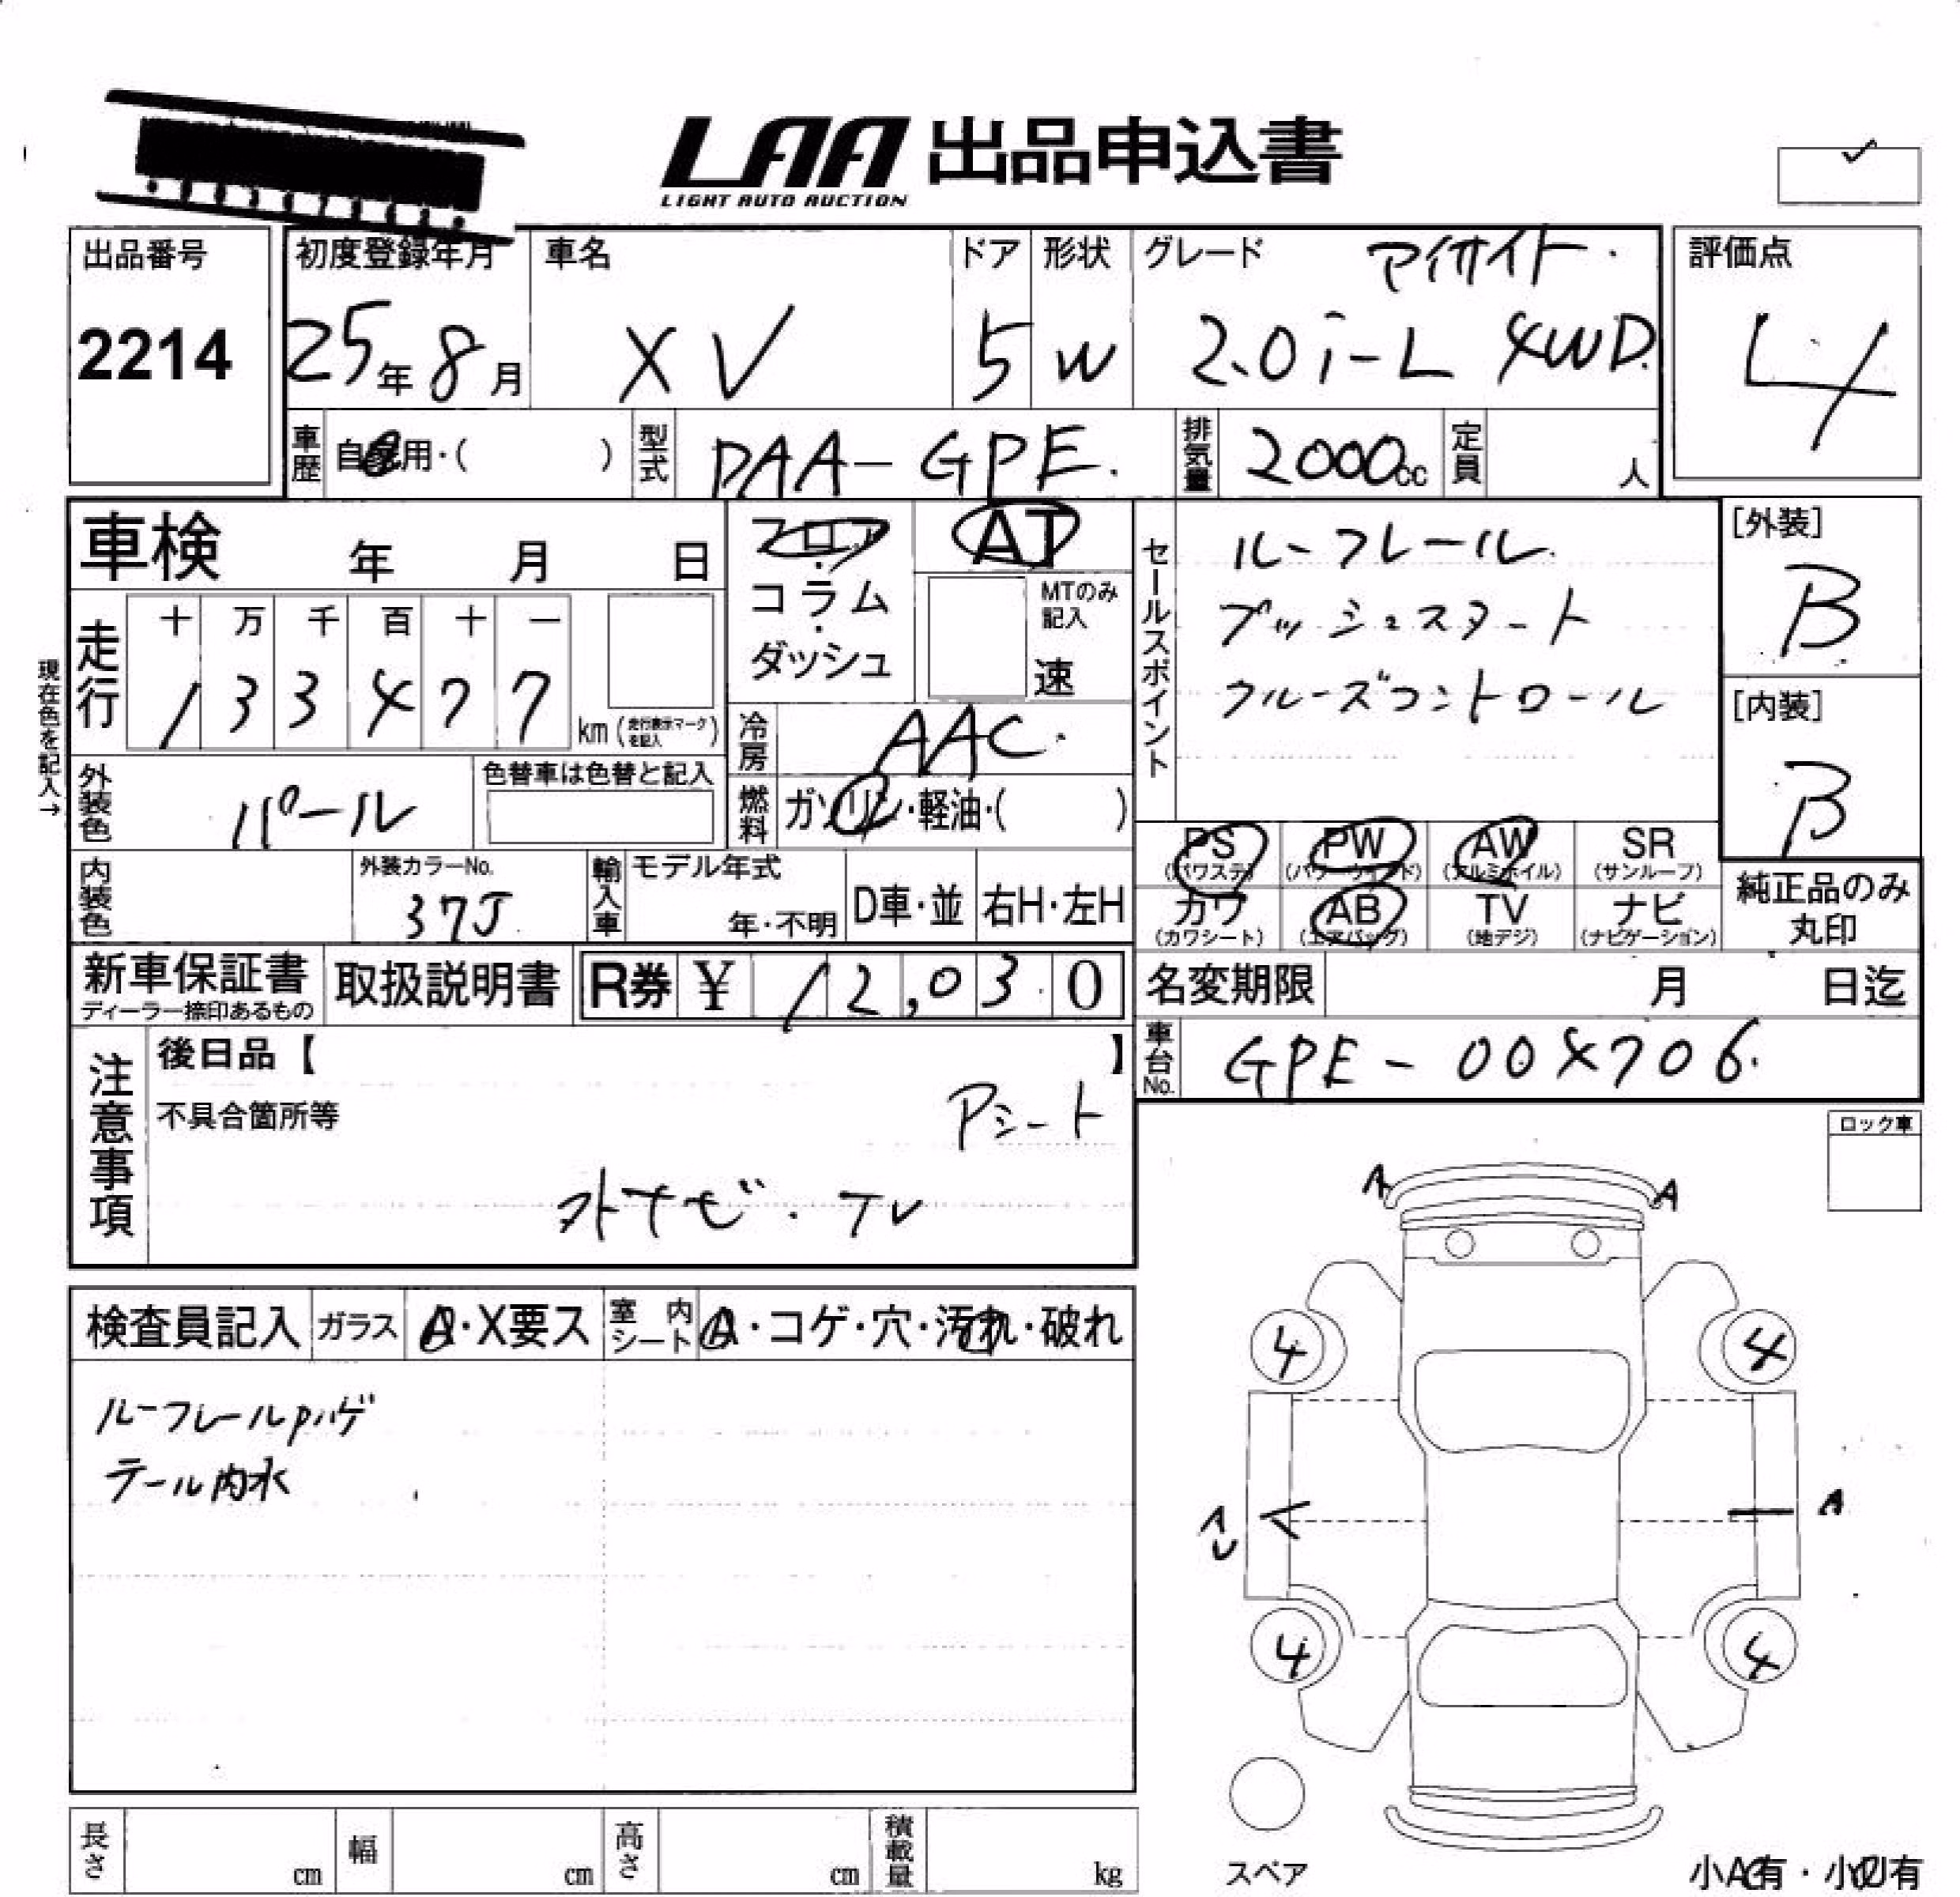 LAA 出品申込書
LIGHT AUTO AUCTION
出品番号
2214
初度登録年月
25年8月
車名
XV
ドア
5
形状
W
グレード
アイサイト.
2.0i-L 4WD.
評価点
4
車歴
自家用・( )
型式
DAA-GPE.
排気量
2000cc
定員
人
車検 年 月 日
フロア
・
コラム
・
ダッシュ
AT
MTのみ
記入
速
セールスポイント
ルーフレール.
プッシュスタート
クルーズコントロール
[外装]
B
[内装]
B
現在色を記入→
走行
十 万 千 百 十 一
1 3 3 4 7 7
km(走行表示マークを記入)
冷房
AAC.
燃料
ガソリン・軽油・( )
外装色
パール
色替車は色替と記入
内装色
外装カラーNo.
37J
輸入車
モデル年式
年・不明
D車・並
右H・左H
PS
(パワステ)
PW
(パワーウィンド)
AW
(アルミホイル)
SR
(サンルーフ)
カワ
(カワシート)
AB
(エアバッグ)
TV
(地デジ)
ナビ
(ナビゲーション)
純正品のみ
丸印
新車保証書
ディーラー捺印あるもの
取扱説明書
R券 ¥ 12,030
名変期限 月 日迄
車台No.
GPE-004706.
注意事項
後日品【 】
不具合箇所等
Pシート
外ナビ.TV
ロック車
A A
検査員記入
ガラス
A・X要ス
室内シート
A・コゲ・穴・汚れ・破れ
ルーフレールPハゲ
テール内水
4 4
A
4 4
長さ cm
幅 cm
高さ cm
積載量 kg
スペア
小A有・小U有